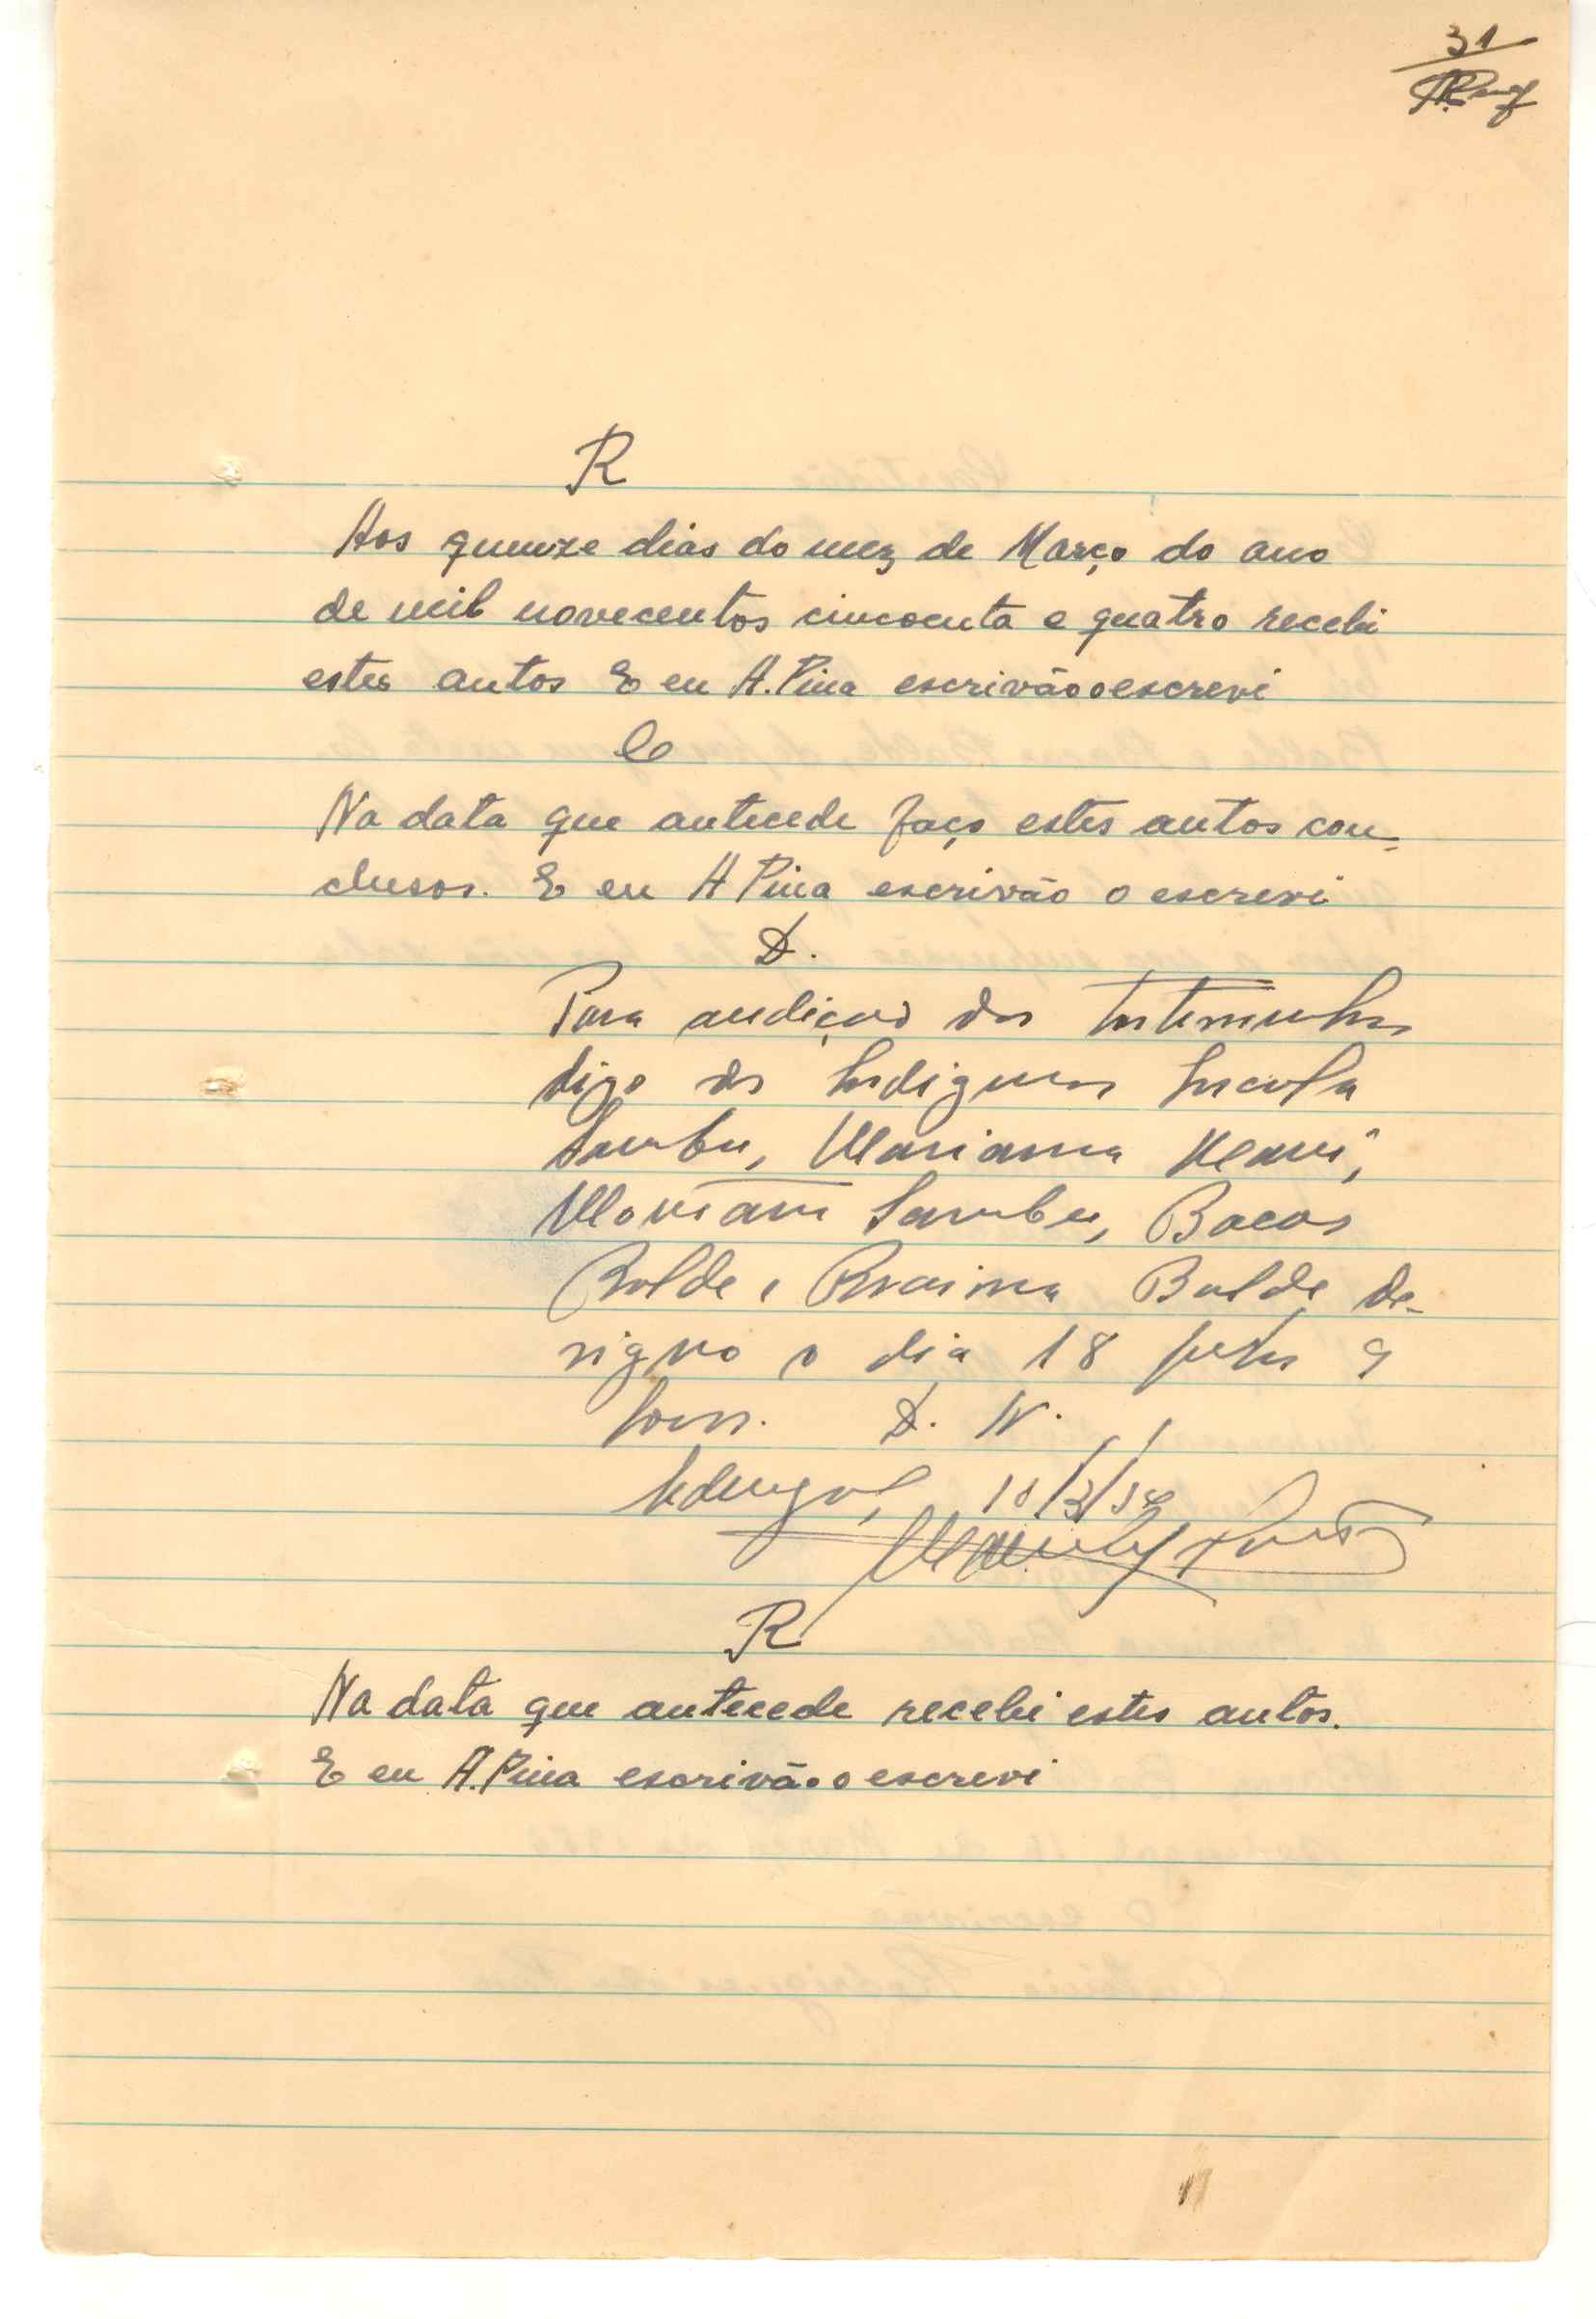 31
APina
R
Aos quinze dias do mez de Março do ano
de mil novecentos cincoenta e quatro recebi
estes autos E eu A. Pina escrivão o escrevi
C
Na data que antecede faço estes autos con-
clusos. E eu A Pina escrivão o escrevi
D.
Para audição das testemunhas
digo dos indigenas
Sambu, Mariama Mané,
Sambu, Bacar
Balde e Braima Balde de-
signo o dia 18 pelas 9
horas. D. N.
Sedengal,
R
Na data que antecede recebi estes autos.
E eu A. Pina escrivão o escrevi